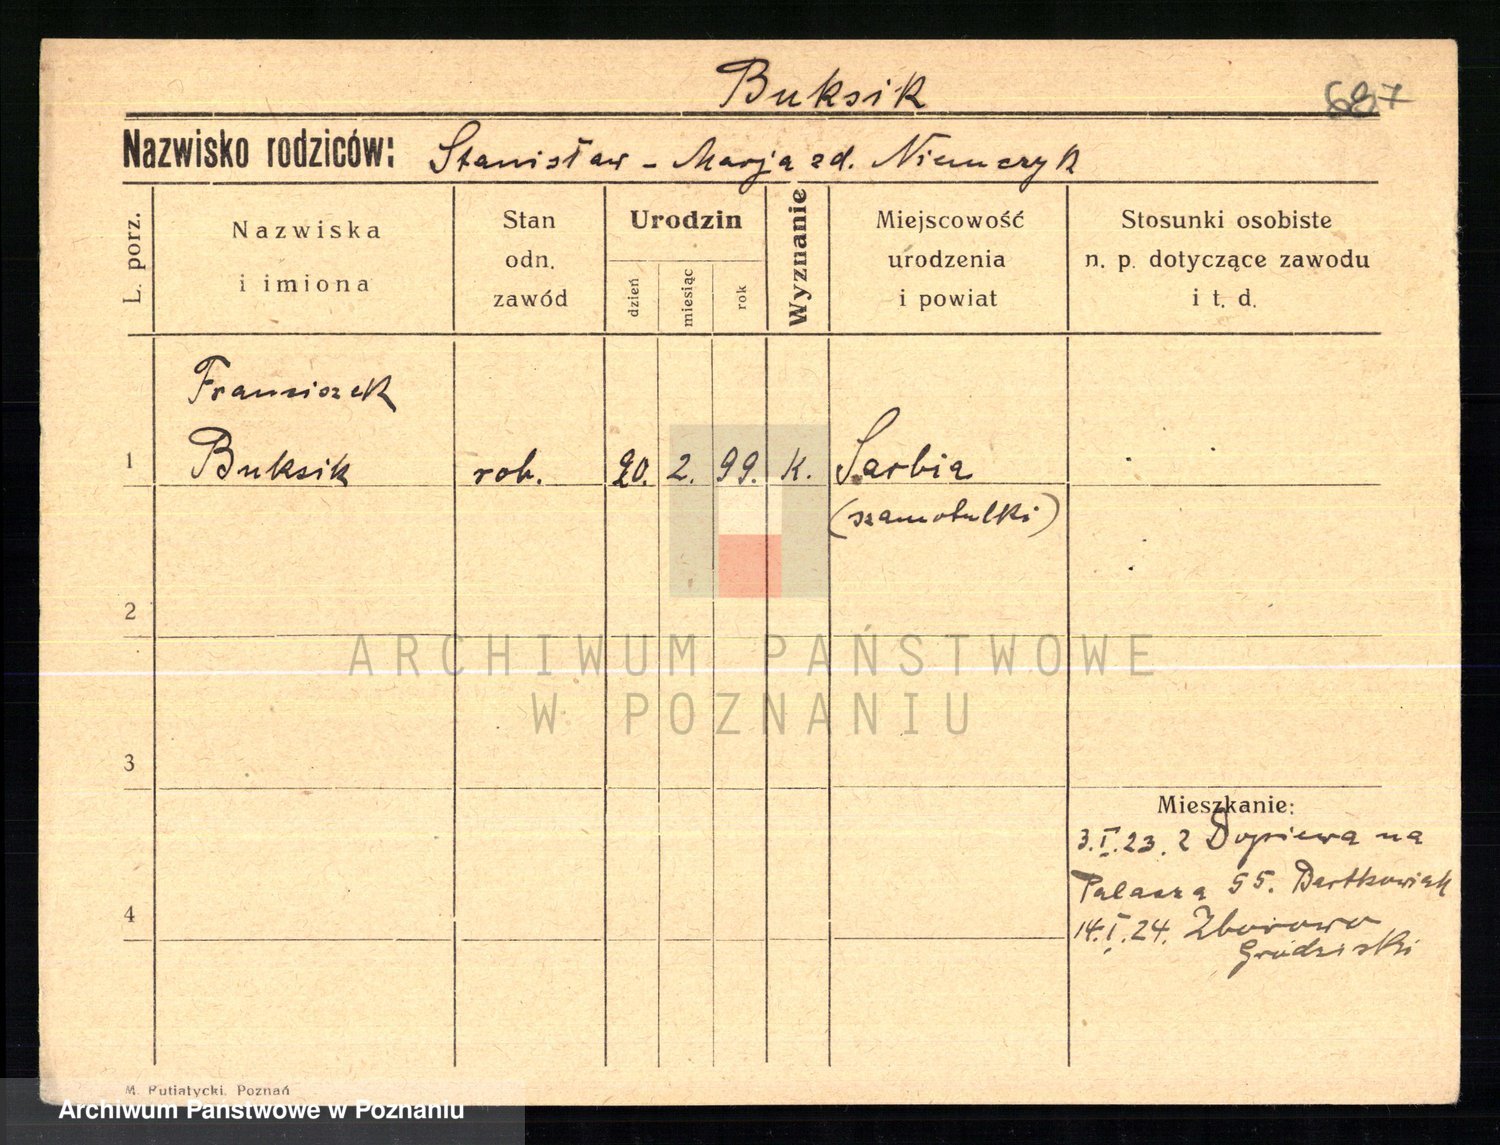 Buksik
687
Nazwisko rodziców: Stanisław - Marja zd. Niemczyk
L. porz.
Nazwiska
i imiona
Stan
odn.
zawód
Urodzin
dzień
miesiąc
rok
Wyznanie
Miejscowość
urodzenia
i powiat
Stosunki osobiste
n. p. dotyczące zawodu
i t. d.
Franciszek
1 Buksik rob. 20. 2. 99. K. Sarbia
(szamotulki)
2
ARCHIWUM PAŃSTWOWE
W POZNANIU
3
Mieszkanie:
3.I.23. z Dopiewa na
Palacza 55. Bartkowiak
4
14.I.24. Zborowo
Grodziski
M. Putiatycki, Poznań
Archiwum Państwowe w Poznaniu